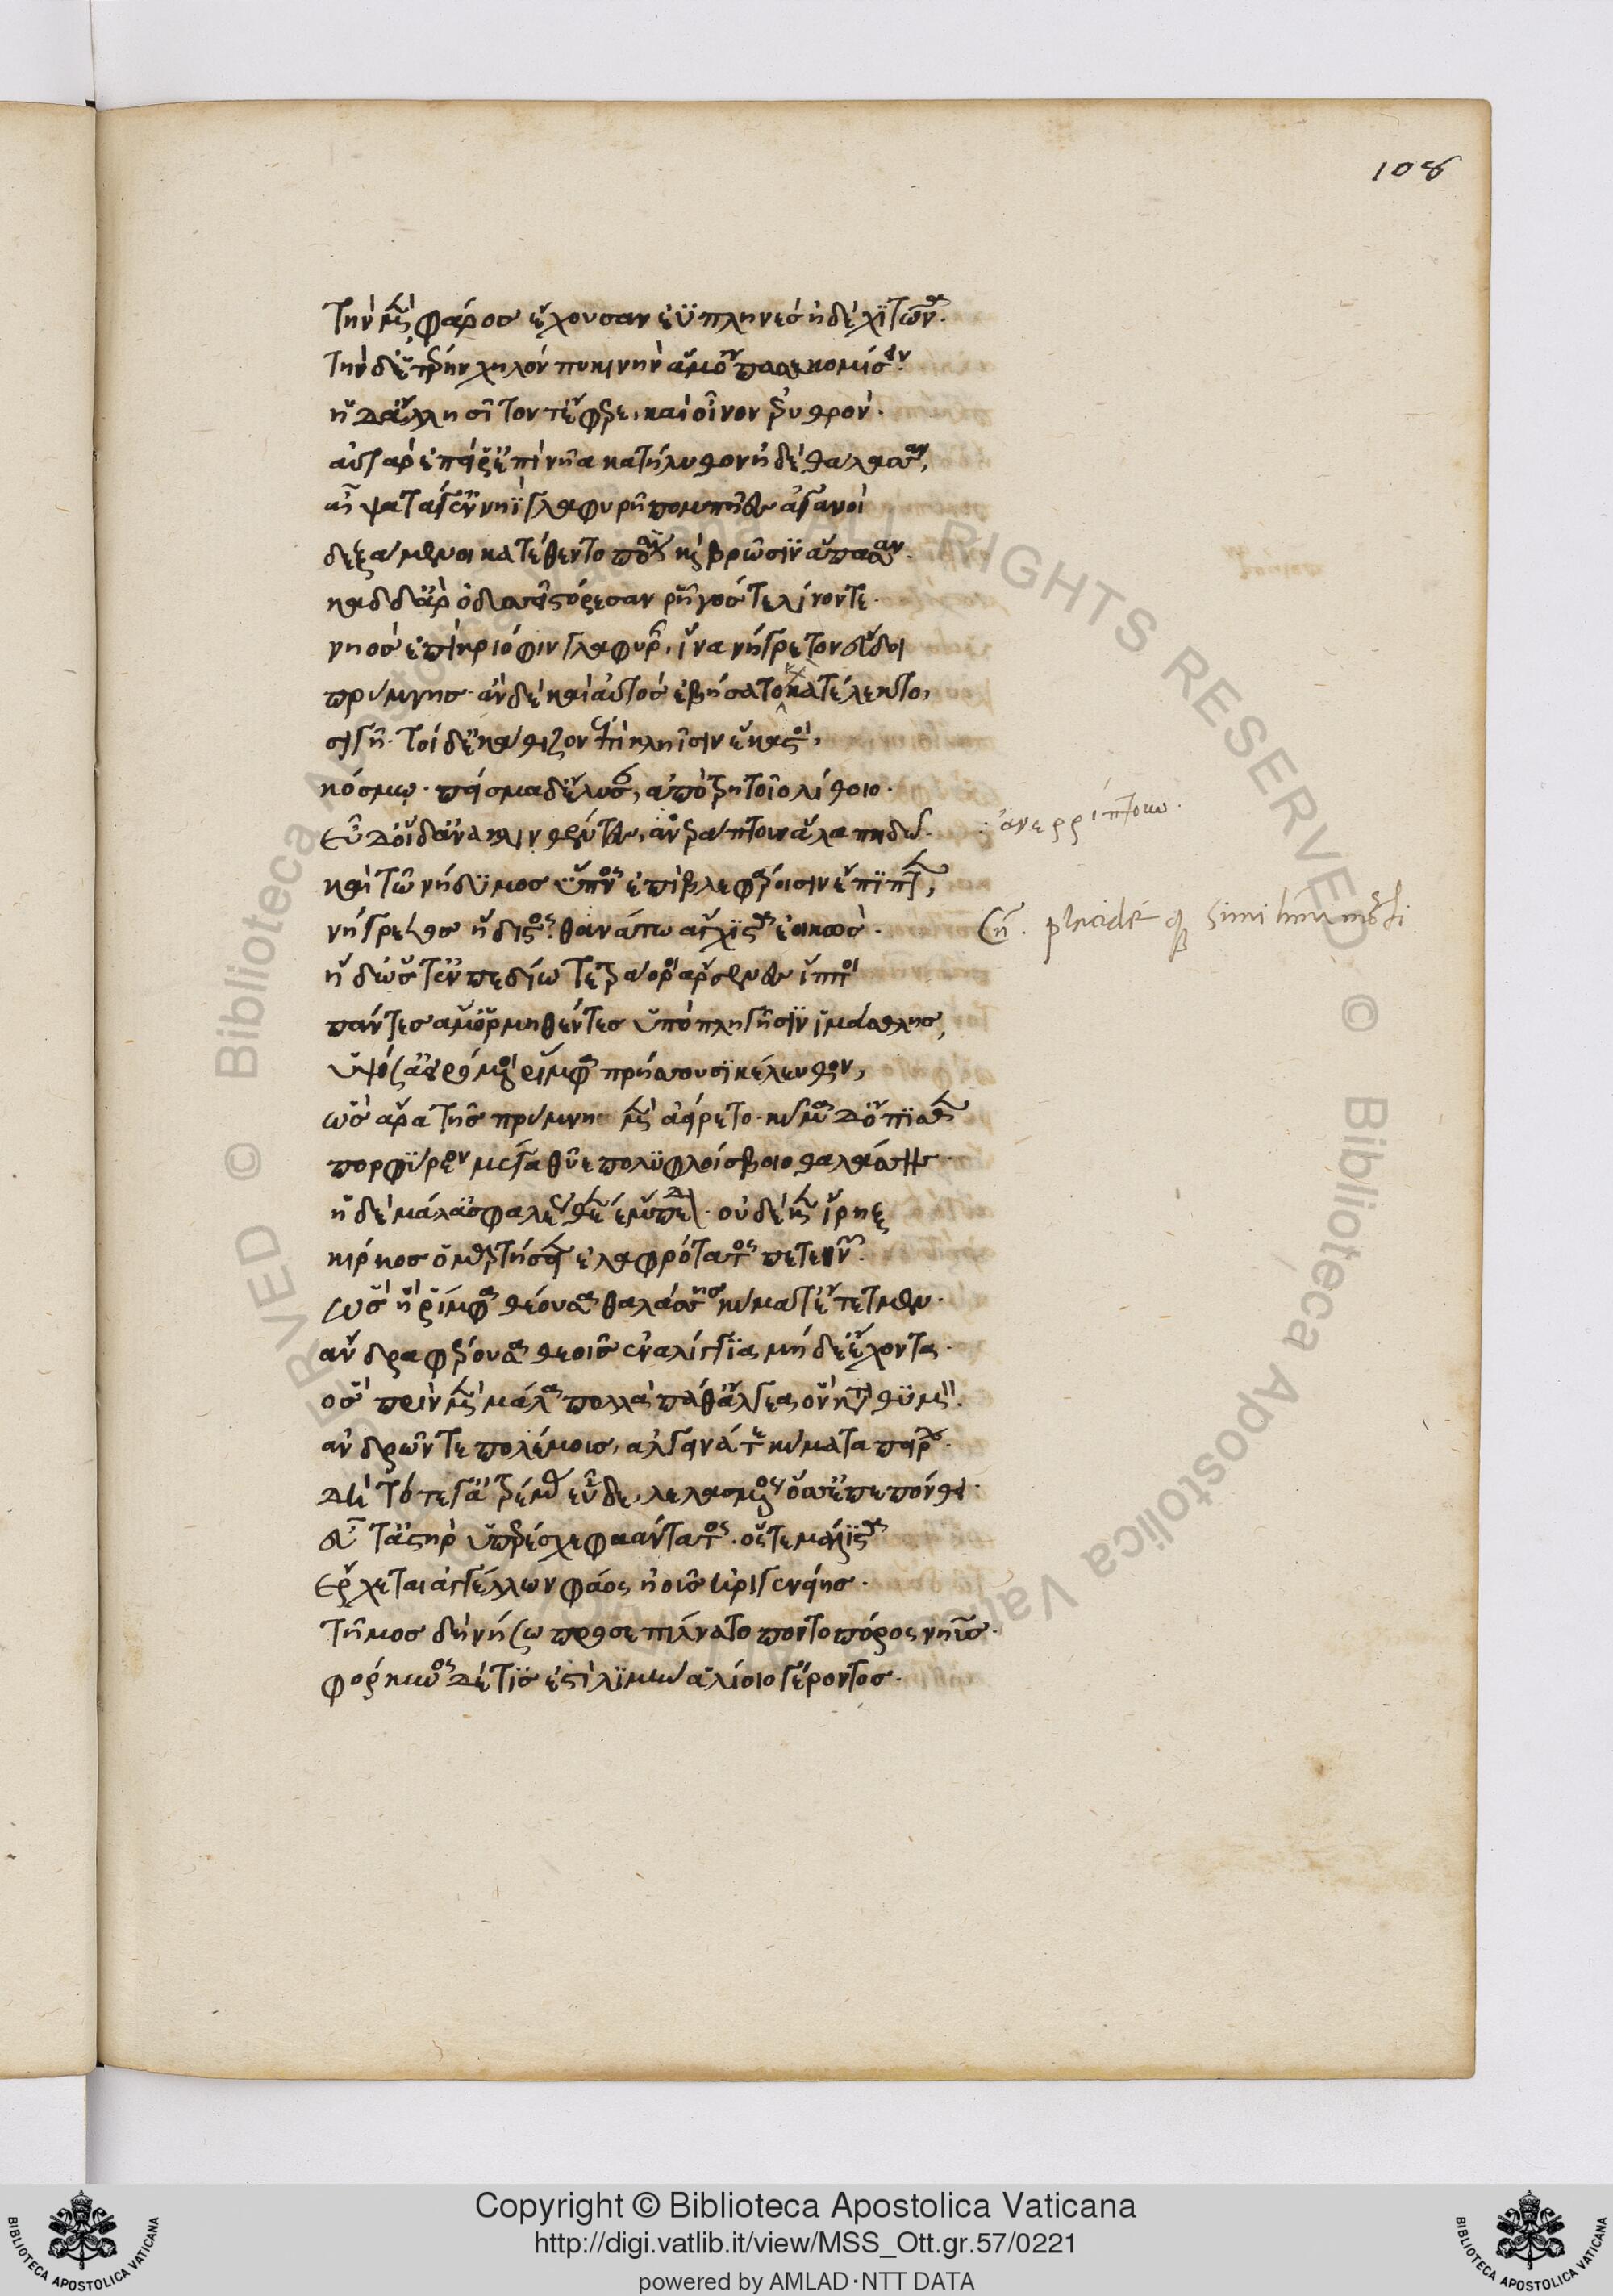 108
Τὴν μὲν φάρος ἔχουσαν ἐϋπλυνὲς ἠδὲ χιτῶνα.
Τὴν δ' ἑτέρην χηλὸν πυκινὴν ἅμ' ὄπασσε κομίζειν.
ἡ δ' ἄλλη σῖτόν τ' ἔφερε, καὶ οἶνον ἐρυθρόν.
αὐτὰρ ἐπεί ῥ' ἐπὶ νῆα κατήλυθον ἠδὲ θάλασσαν,
αἶψα τά γ' ἐν νηῒ γλαφυρῇ πομπῆες ἀγαυοὶ
δεξάμενοι κατέθεντο πόσιν καὶ βρῶσιν ἅπασαν.
καδδ' ἄρ' ὀδυσσῆϊ στόρεσαν ῥῆγός τε λίνον τε.
νηὸς ἐπ' ἰκριόφιν γλαφυρῆς, ἵνα νήγρετον εὕδοι
πρύμνης. ἂν δὲ καὶ αὐτὸς ἐβήσατο κατέλεκτο,
σιγῇ. τοὶ δὲ κάθιζον ἐπὶ κληῖσιν ἕκαστοι,
κόσμῳ. πεῖσμα δ' ἔλυσαν, ἀπὸ τρητοῖο λίθοιο.
Εὖθ' οἱ δ' ἀνακλινθέντες, ἀνερρίπτουν ἅλα πηδῷ.
ἀνερρίπτουν.
καὶ τῷ νήδυμος ὕπνος ἐπὶ βλεφάροισιν ἔπιπτεν,
νήγρετος ἥδιστος. θανάτῳ ἄγχιστα ἐοικώς.
placide simillima morti
ἡ δ' ὥς τ' ἐν πεδίῳ τετράοροι ἄρσενες ἵπποι
πάντες ἅμ' ὁρμηθέντες ὑπὸ πληγῇσιν ἱμάσθλης,
ὑψόσ' ἀειρόμενοι ῥίμφα πρήσσουσι κέλευθον,
ὣς ἄρα τῆς πρύμνη μὲν ἀείρετο. κῦμα δ' ὄπισθεν
πορφύρεον μέγα θῦε πολυφλοίσβοιο θαλάσσης.
ἡ δὲ μάλ' ἀσφαλέως θέεν ἔμπεδον. οὐδέ κεν ἴρηξ
κίρκος ὁμαρτήσειεν ἐλαφρότατος πετεηνῶν.
ὣς ἡ ῥίμφα θέουσα θαλάσσης κύματ' ἔτεμνεν.
ἄνδρα φέρουσα θεοῖς ἐναλίγκια μήδε' ἔχοντα.
ὃς πρὶν μὲν μάλα πολλὰ πάθ' ἄλγεα ὃν κατὰ θυμόν.
ἀνδρῶν τε πολέμοις, ἀλεγεινά τε κύματα πείρων.
δὴ τότε γ' ἀτρέμας εὗδε, λελασμένος ὅσσ' ἐπεπόνθει.
εὖτ' ἀστὴρ ὑπερέσχε φαάντατος. ὅς τε μάλιστα
Ἔρχεται ἀγγέλλων φάος ἠοῦς ἠριγενείης.
τῆμος δὴ νήσῳ προσεπίλνατο ποντοπόρος νηῦς.
φόρκυνος δέ τις ἐστὶ λιμὴν ἁλίοιο γέροντος.
Copyright © Biblioteca Apostolica Vaticana
http://digi.vatlib.it/view/MSS_Ott.gr.57/0221
powered by AMLAD·NTT DATA